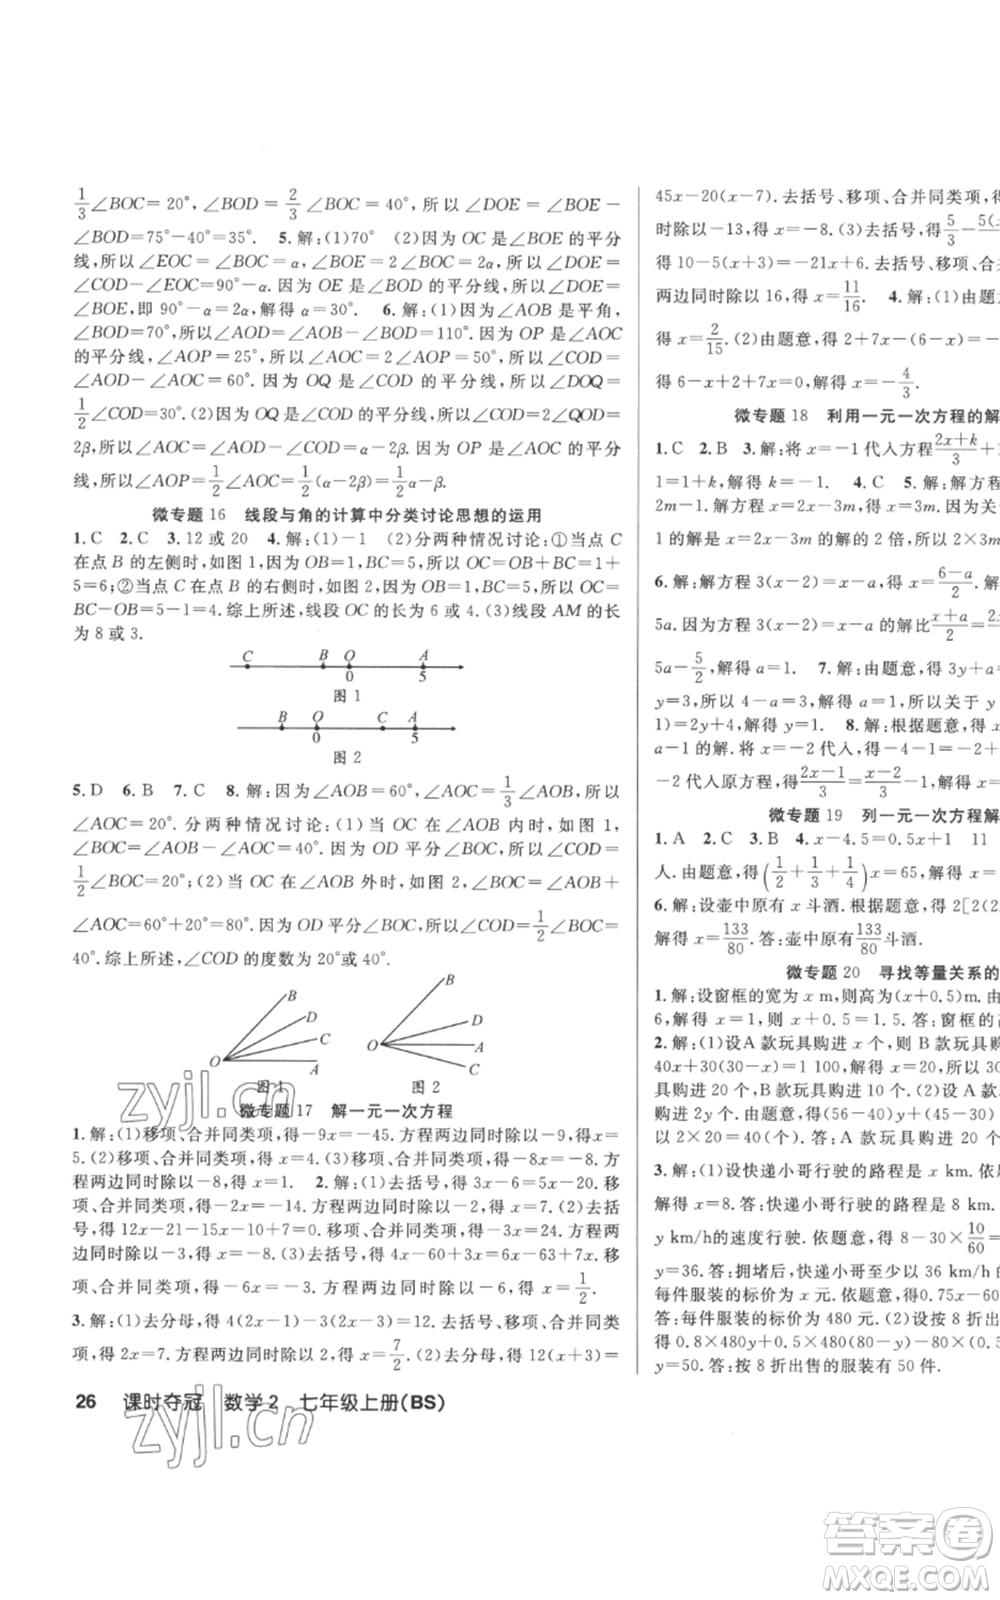 1/3∠BOC=20°,所以∠DOB=2/3∠BOC=40°,所以∠DOE=∠BOE-
∠BOD=75°-40°=35°. 5.解:(1)70° (2)因为OC是∠BOE的平分
线,所以∠EOC=∠BOC=α,所以∠BOE=2∠BOC=2α,所以∠DOE=
∠COD-∠EOC=90°-α.因为OE是∠BOD的平分线,所以∠DOE=
∠BOE,即90°-α=2α,解得α=30°. 6.解:(1)因为∠AOB是平角,
∠BOD=70°,所以∠AOD=∠AOB-∠BOD=110°.因为OP是∠AOC
的平分线,∠AOP=25°,所以∠AOC=2∠AOP=50°,所以∠COD=
∠AOD-∠AOC=60°.因为OQ是∠COD的平分线,所以∠DOQ=
1/2∠COD=30°.(2)因为OQ是∠COD的平分线,所以∠COD=2∠DOQ=
2β,所以∠AOC=∠AOD-∠COD=α-2β.因为OP是∠AOC的平分
线,所以∠AOP=1/2∠AOC=1/2(α-2β)=1/2α-β.
微专题16 线段与角的计算中分类讨论思想的运用
1.C 2.C 3.12或20 4.解:(1)-1 (2)分两种情况讨论:①当点C
在点B的左侧时,如图1,因为OB=1,BC=5,所以OC=OB+BC=1+
5=6;②当点C在点B的右侧时,如图2,因为OB=1,BC=5,所以OC=
BC-OB=5-1=4.综上所述,线段OC的长为6或4.(3)线段AM的长
为8或3.
C B O A
0 5
图1
B O C A
0 5
图2
5.D 6.B 7.C 8.解:因为∠AOB=60°,∠AOC=1/3∠AOB,所以
∠AOC=20°.分两种情况讨论:(1)当OC在∠AOB内时,如图1,
∠BOC=∠AOB-∠AOC=60°-20°=40°.因为OD平分∠BOC,所以∠COD=
1/2∠BOC=20°;(2)当OC在∠AOB外时,如图2,∠BOC=∠AOB+
∠AOC=60°+20°=80°.因为OD平分∠BOC,所以∠COD=1/2∠BOC=
40°.综上所述,∠COD的度数为20°或40°.
B D C A O
B D A C O
图1 图2
微专题17 解一元一次方程
1.解:(1)移项、合并同类项,得-9x=-45.方程两边同时除以-9,得x=
5.(2)移项、合并同类项,得-8x=8.方程两边同时除以-8,得x=-1.(3)移项、合并同类项,得-8x=-8.方程
两边同时除以-8,得x=1. 2.解:(1)去括号,得
-2x=-14.方程两边同时除以-2,得x=7.(2)去括
号,得12x-24x+20=10x+5.移项、合并同类项,得-22x=-15.方程两
边同时除以-22,得x=15/22.(3)去括号,得4x-60+3x=6x-63+7x.移项、
合并同类项,得-6x=-3.方程两边同时除以-6,得x=1/2.
3.解:(1)去分母,得4(2x-1)-3(2x-3)=12.去括号、移项、合并同类项,
得2x=7.方程两边同时除以2,得x=7/2.(2)去分母,得12(5x+15)=
26 课时夺冠 数学2 七年级上册(BS)
45x-20(x-7).去括号、移项、合并同类项,得
时除以-13,得x=-8.(3)去括号,得5/3-5(x
得10-5(x+3)=-21x+6.去括号、移项、合
两边同时除以16,得x=11/16. 4.解:(1)由题意
得x=2/15.(2)由题意,得2+7x-(6-x)=-
得6-x+2+7x=0,解得x=-4/3.
微专题18 利用一元一次方程的解
1.C 2.B 3.解:将x=-1代入方程(2x+k)/3+1
1=1+k,解得k=-1. 4.C 5.解:解方程
2m-1.解方程x=2x-3m,得x=3m.因为关于
1的解是x=2x-3m的解的2倍,所以2×3m
6.解:解方程3(x-2)=x-a,得x=(6-a)/2.解
5a.因为方程3(x-2)=x-a的解比(x+a)/2=2x
5a-5/2,解得a=1. 7.解:由题意,得3y+a=
y=3,所以4-a=3,解得a=1,所以关于y
1)=2y+4,解得y=1. 8.解:根据题意,得x=
a-1的解.将x=-2代入,得-4-1=-2+
-2代入原方程,得(2x-1)/3=(x-2)/3-1,解得x=
微专题19 列一元一次方程解
1.A 2.C 3.B 4.x-4.5=0.5x+1 11
人.由题意,得(1/2+1/3+1/4)x=65,解得x=
6.解:设壶中原有x斗酒.根据题意,得2[2(2
解得x=133/80.答:壶中原有133/80斗酒.
微专题20 寻找等量关系的
1.解:设窗框的宽为x m,则高为(x+0.5)m.由
6,解得x=1.x+0.5=1.5.答:窗框的高
2.解:(1)设A款玩具购进x个,则B款玩具购
40x+30(30-x)=1 100,解得x=20.30-x=
具购进20个,B款玩具购进10个.(2)设A款
购进2y个.由题意,得(56-40)y+(45-30)×
以2×20=40(个).答:A款玩具购进20个
3.解:(1)设快递小哥行驶的路程是x km.依题
解得x=8.答:快递小哥行驶的路程是8 km.
y km/h的速度行驶.依题意,得8-30×10/60=
y=36.答:拥堵后,快递小哥至少以36 km/h的
每件服装的标价为x元.依题意,得0.75x-60
答:每件服装的标价为480元.(2)设按8折出
得0.8×480y+0.5×480(50-y)-80×(50
y=50.答:按8折出售的服装有50件.
zyjl.cn
zyjl.cn
答案圈
MXQE.COM